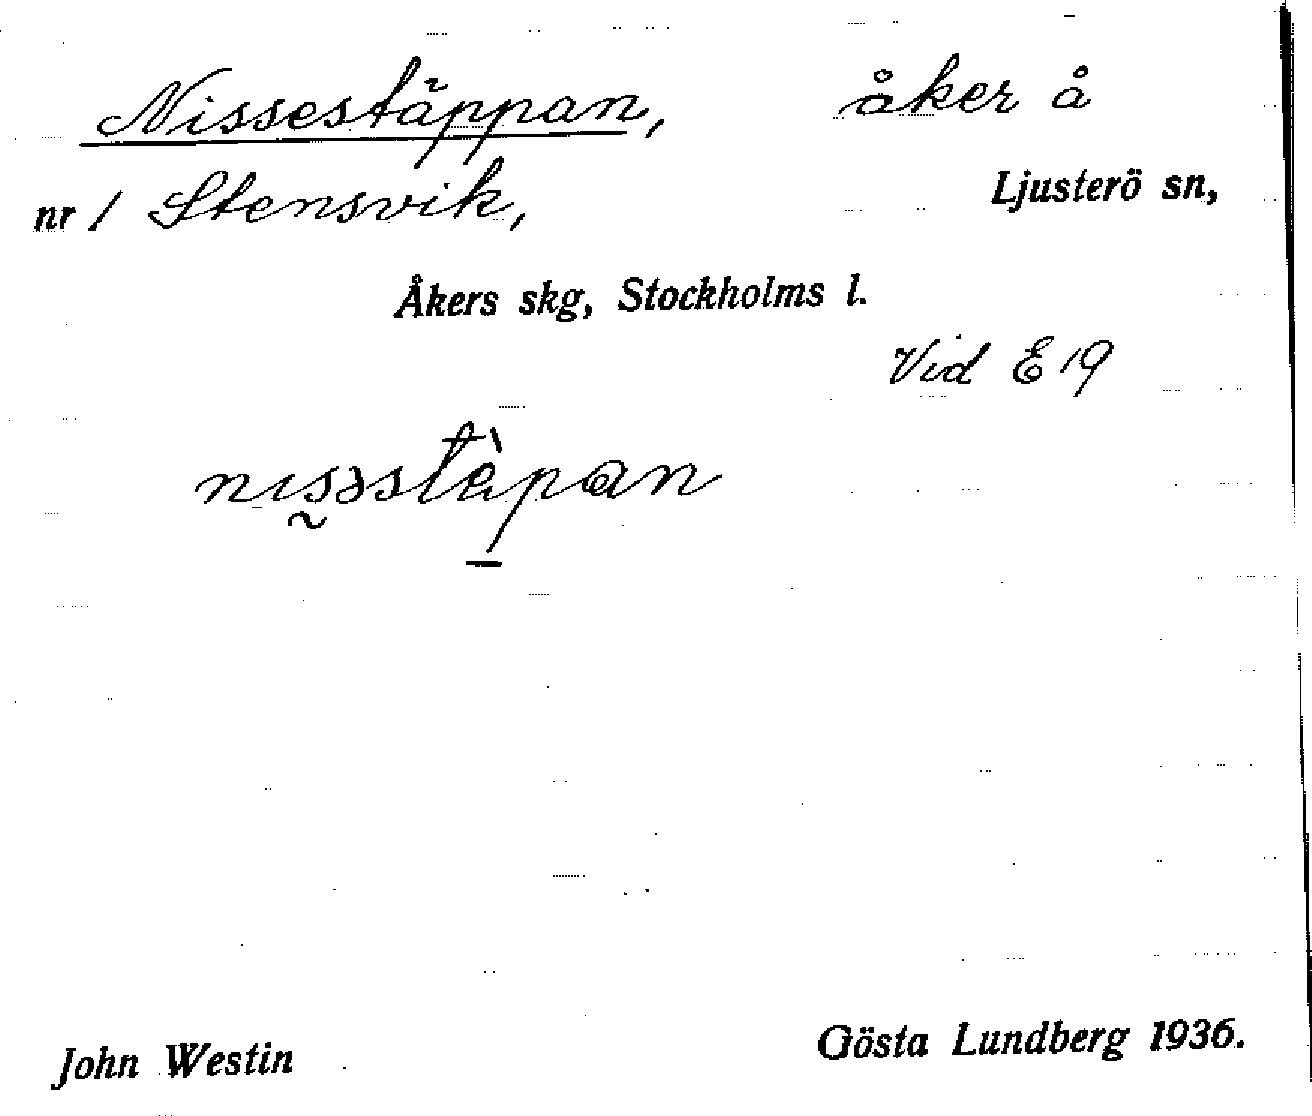 Nissestäppan, åker å
nr 1 Stensvik, Ljusterö sn,
Åkers skg, Stockholms l.
Vid E 19
nısəstèpan
John Westin Gösta Lundberg 1936.